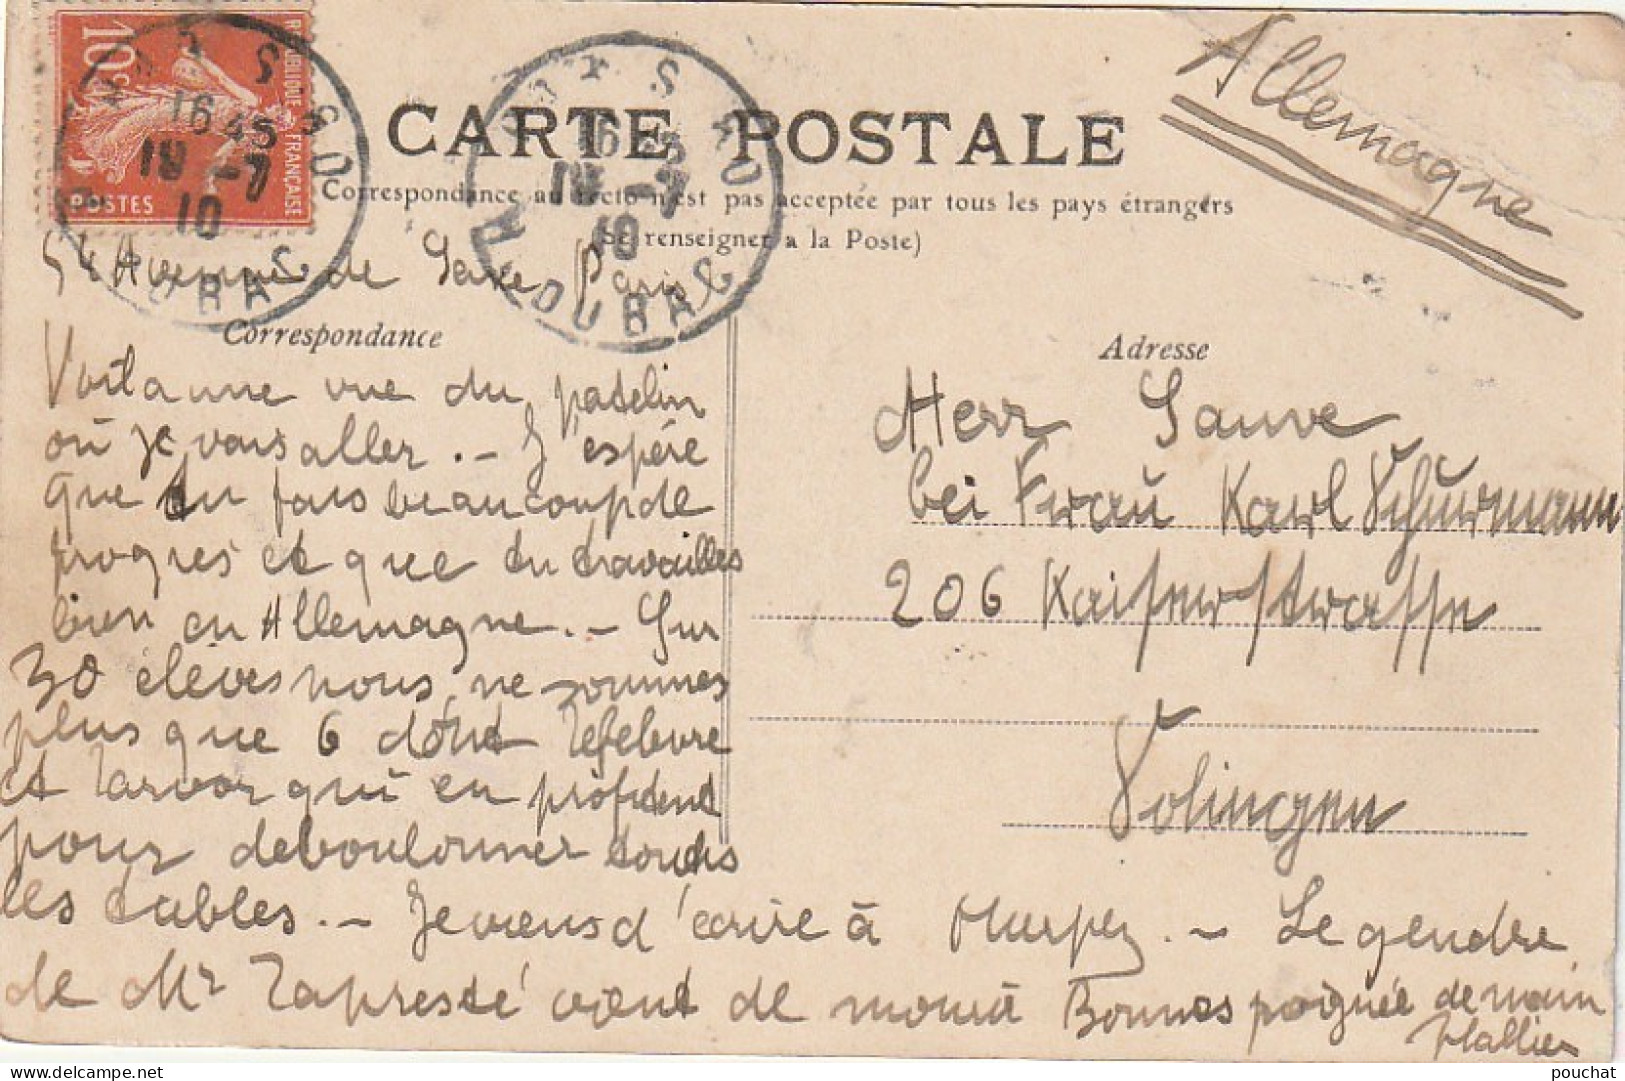 10c
RÉPUBLIQUE FRANÇAISE
POSTES
16 45
19 -7
10
16 45
19 -7
10
Allemagne
CARTE POSTALE
Correspondance au recto n'est pas acceptée par tous les pays étrangers
(Se renseigner a la Poste)
54 Avenue de Saxe Paris
Correspondance
Adresse
Voila une vue du patelin
où je vais aller. — J'espère
que tu fais beaucoup de
progrès et que tu travailles
bien en Allemagne. — Sur
30 élèves nous ne sommes
plus que 6 dont Lefebvre
et Tarvor qui en profitent
pour deboulonner toutes
les tables. — Je viens d'écrire à
Le gendre
de Mr Lapresté vient de mourir Bonnes poignée de main
Hallier
Herr Sauve
bei Frau Karl Schürmann
206 Kaiserstrasse
Solingen
pouchat